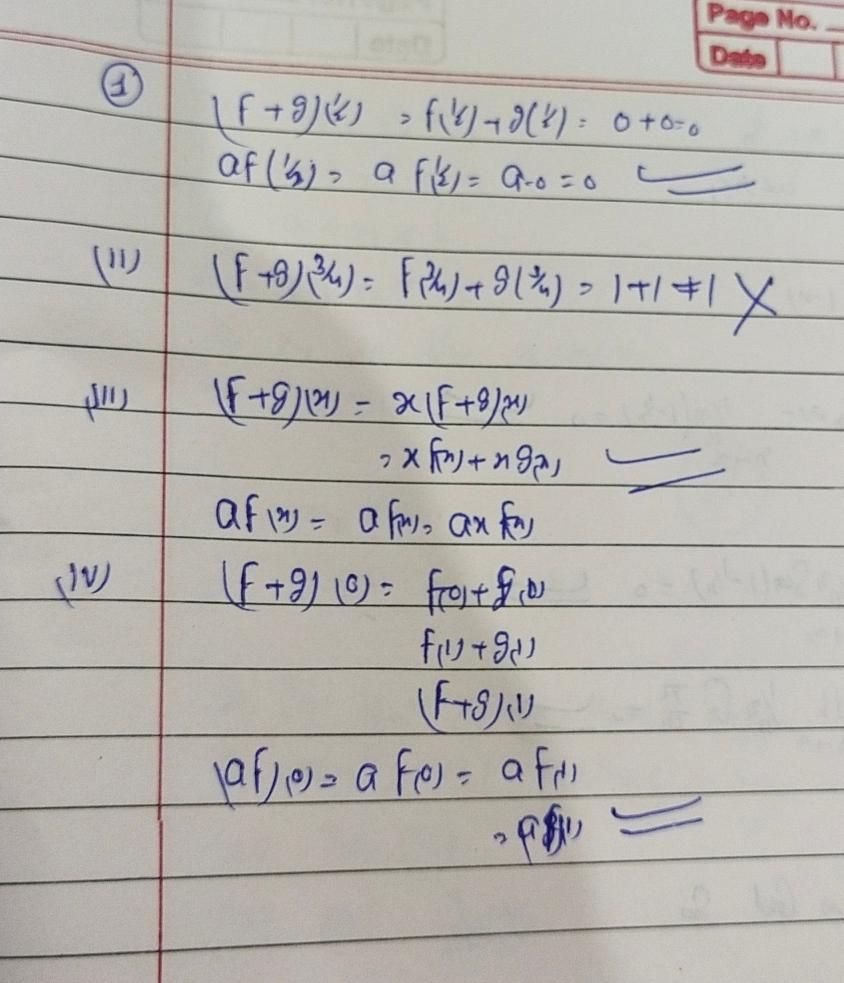 Page No.
Date
(1)
(f+g)(1/2) = f(1/2)+g(1/2) = 0+0=0
af(1/2) = a f(1/2) = a.0 = 0
(ii) (f+g)(3/4) = f(3/4)+g(3/4) = 1+1 ≠ 1 X
(iii) (f+g)(x) = x(f+g)(x)
= x f(x) + x g(x)
af(x) = a f(x) = ax f(x)
(iv) (f+g)(0) = f(0)+g(0)
f(1)+g(1)
(f+g)(1)
(af)(0) = a f(0) = a f(1)